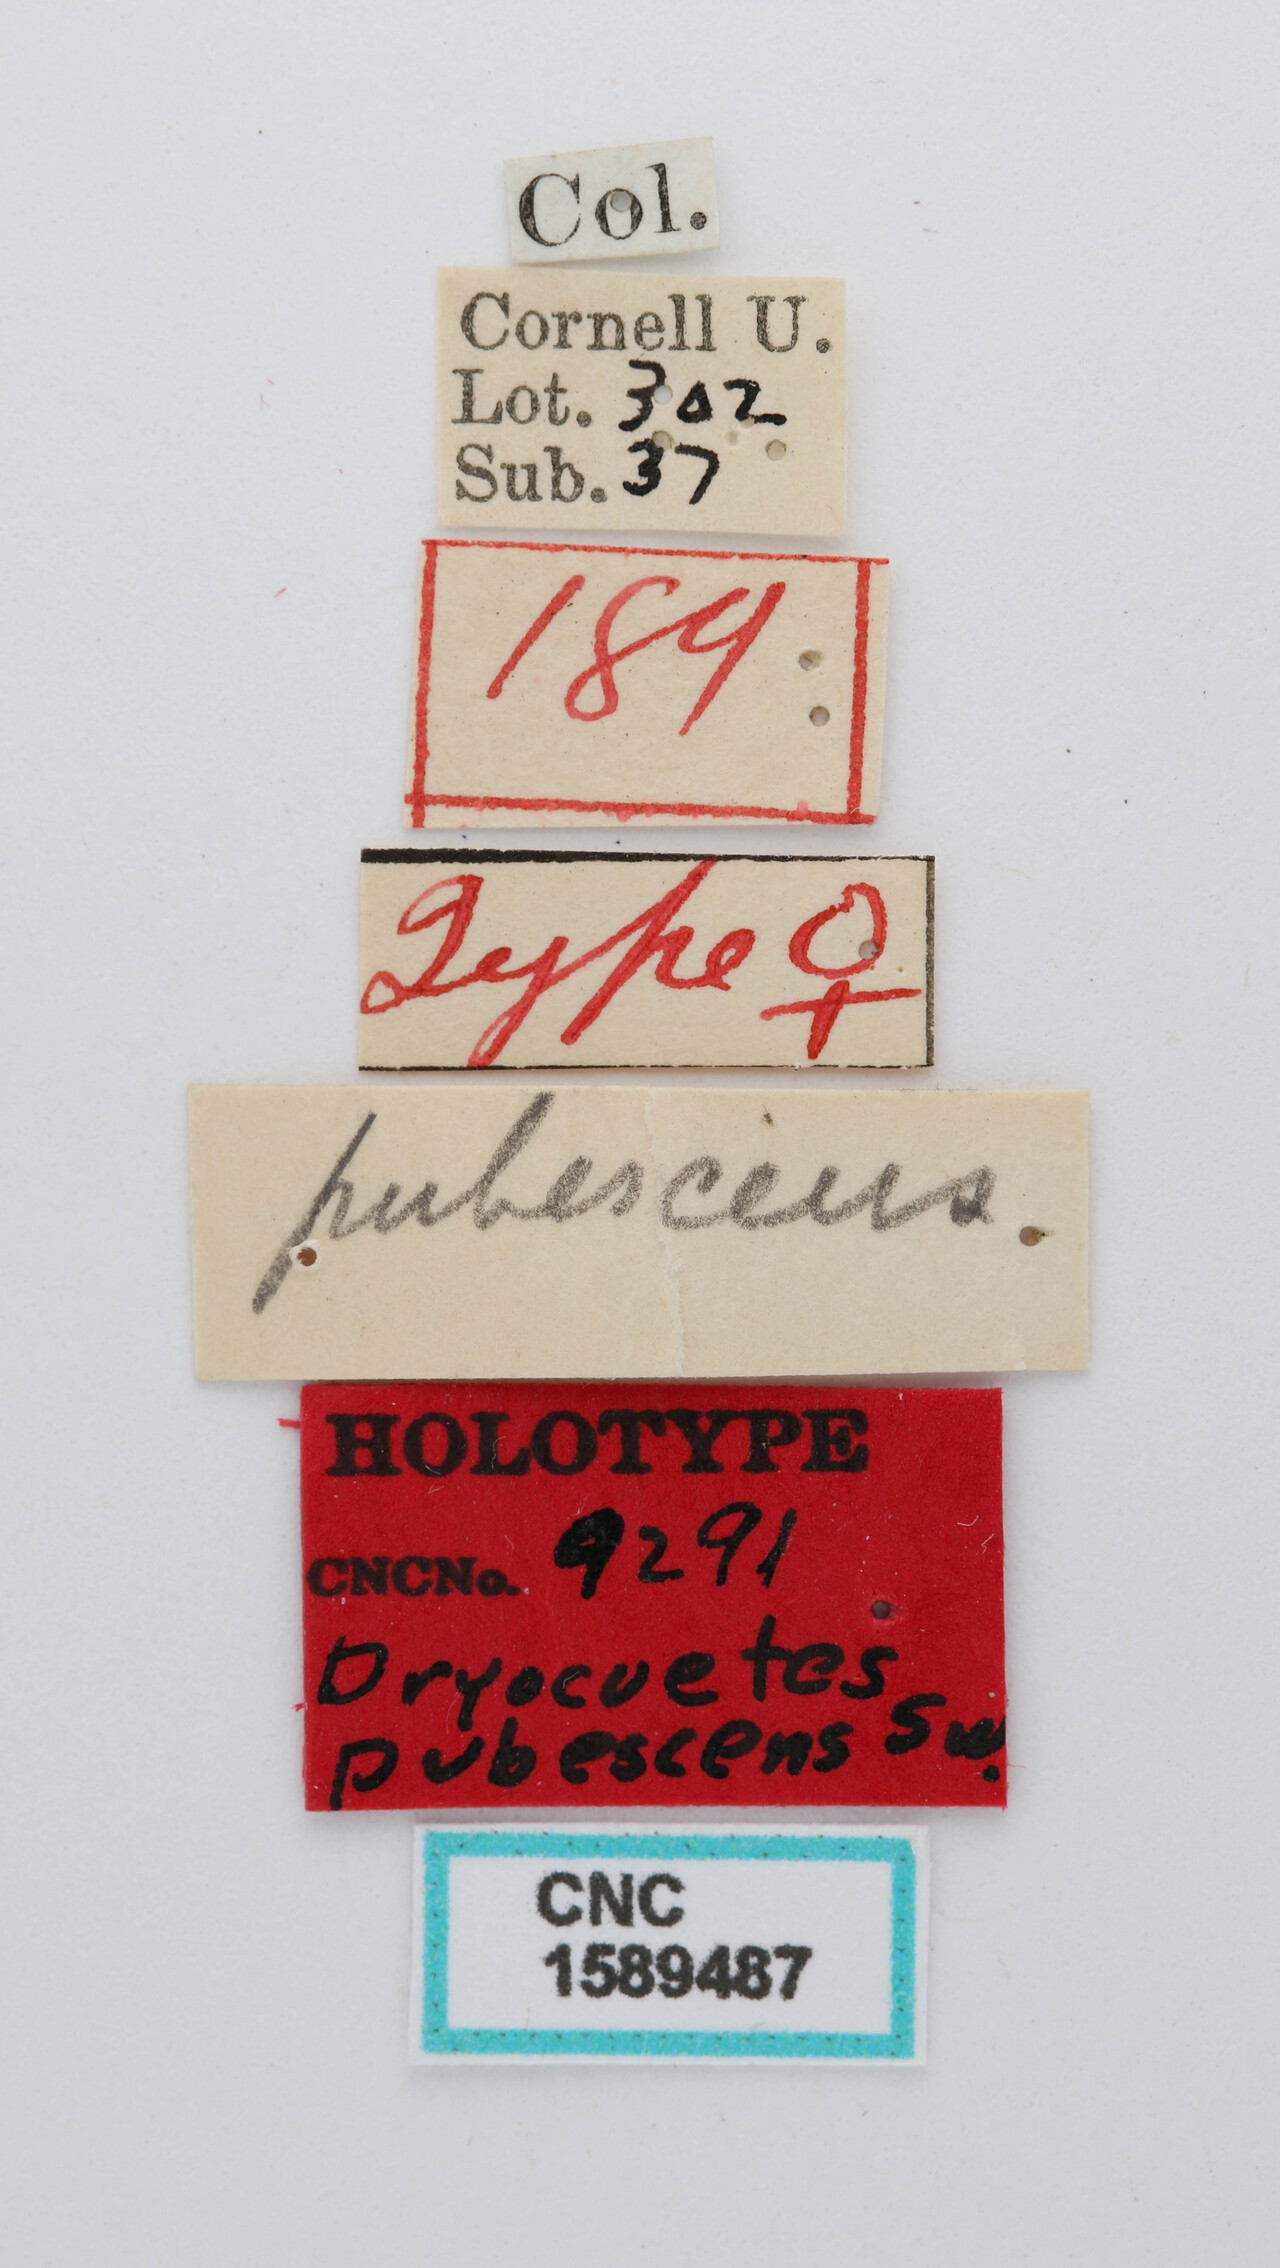 Col.
Cornell U.
Lot. 302
Sub. 37
189
Type ♀
pubescens.
HOLOTYPE
CNCNo. 9291
Dryocuetes
pubescens Sw.
CNC
1589487